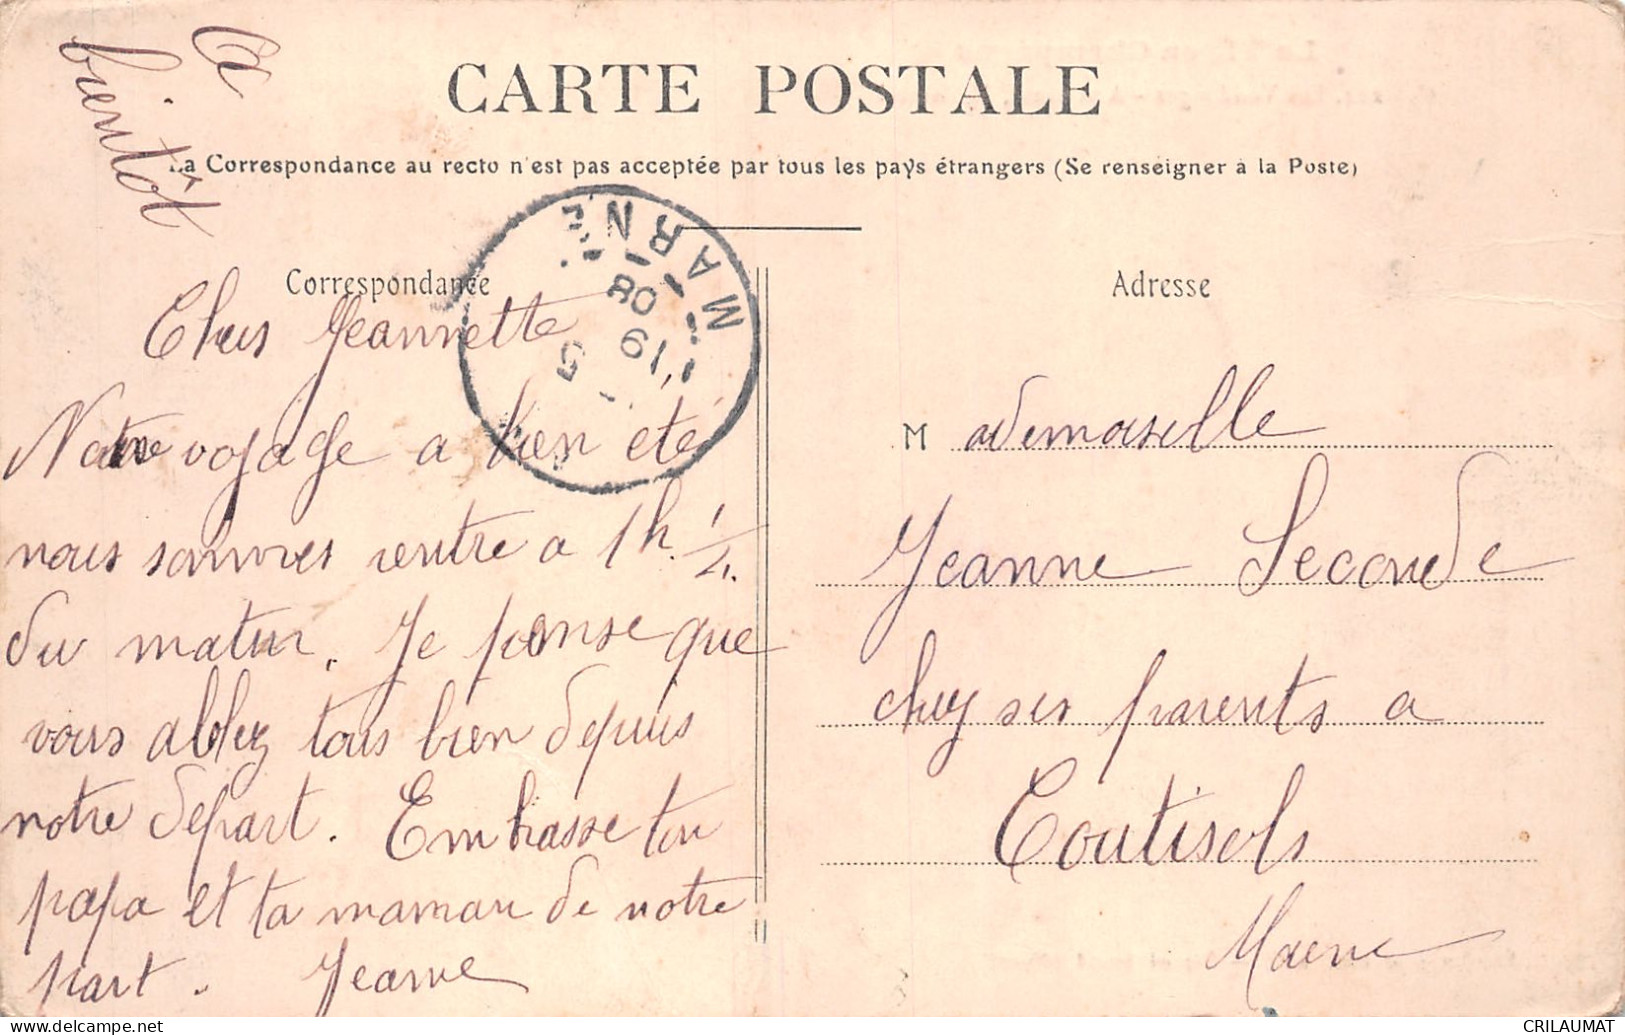 Ca
bientôt
CARTE POSTALE
La Correspondance au recto n'est pas acceptée par tous les pays étrangers (Se renseigner à la Poste)
MARNE
5
19
08
Correspondance
Cher Jeannette
Notre voyage a bien eté
nous sommes rentre a 1h. 1/2.
du matin. Je panse que
vous alblez tous bien depuis
notre départ. Embrasse ton
papa et ta maman de notre
part. Jeanne
Adresse
M ademoiselle
Jeanne Seconde
chez ses parents a
Coutisols
Marne
CRILAUMAT